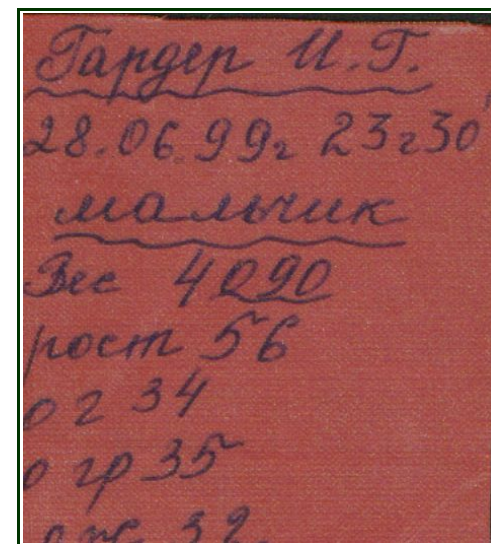 Гардер И.Г.
28.06.99г 23г30
мальчик
Вес 4090
рост 56
о г 34
о гр 35
о ж 32